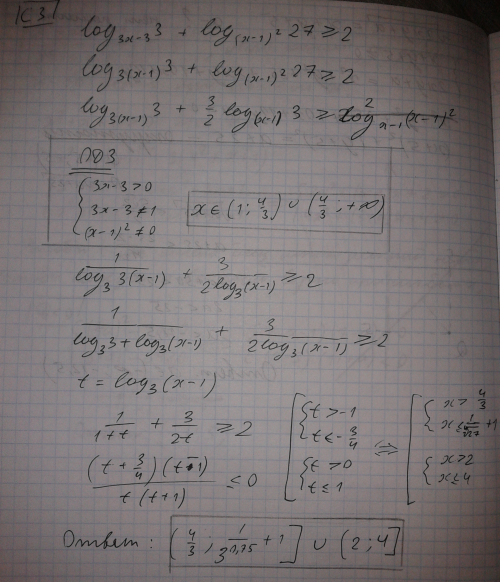 C3
log_{3x-3} 3 + log_{(x-1)²} 27 ≥ 2
log_{3(x-1)} 3 + log_{(x-1)²} 27 ≥ 2
log_{3(x-1)} 3 + 3/2 log_{(x-1)} 3 ≥ 2
ОДЗ
{ 3x-3 > 0
3x-3 ≠ 1
(x-1)² ≠ 0
x ∈ (1; 4/3) ∪ (4/3; +∞)
1/(log₃ 3(x-1)) + 3/(2log₃(x-1)) ≥ 2
1/(log₃3 + log₃(x-1)) + 3/(2log₃(x-1)) ≥ 2
t = log₃(x-1)
1/(1+t) + 3/(2t) ≥ 2
((t + 3/4)(t-1))/(t(t+1)) ≤ 0
[ { t > -1
t ≤ -3/4
{ t > 0
t ≤ 1
⇔
[ { x > 4/3
x ≤ 1/⁴√27 + 1
{ x > 2
x ≤ 4
Ответ: (4/3; 1/3^{0,75} + 1] ∪ (2; 4]